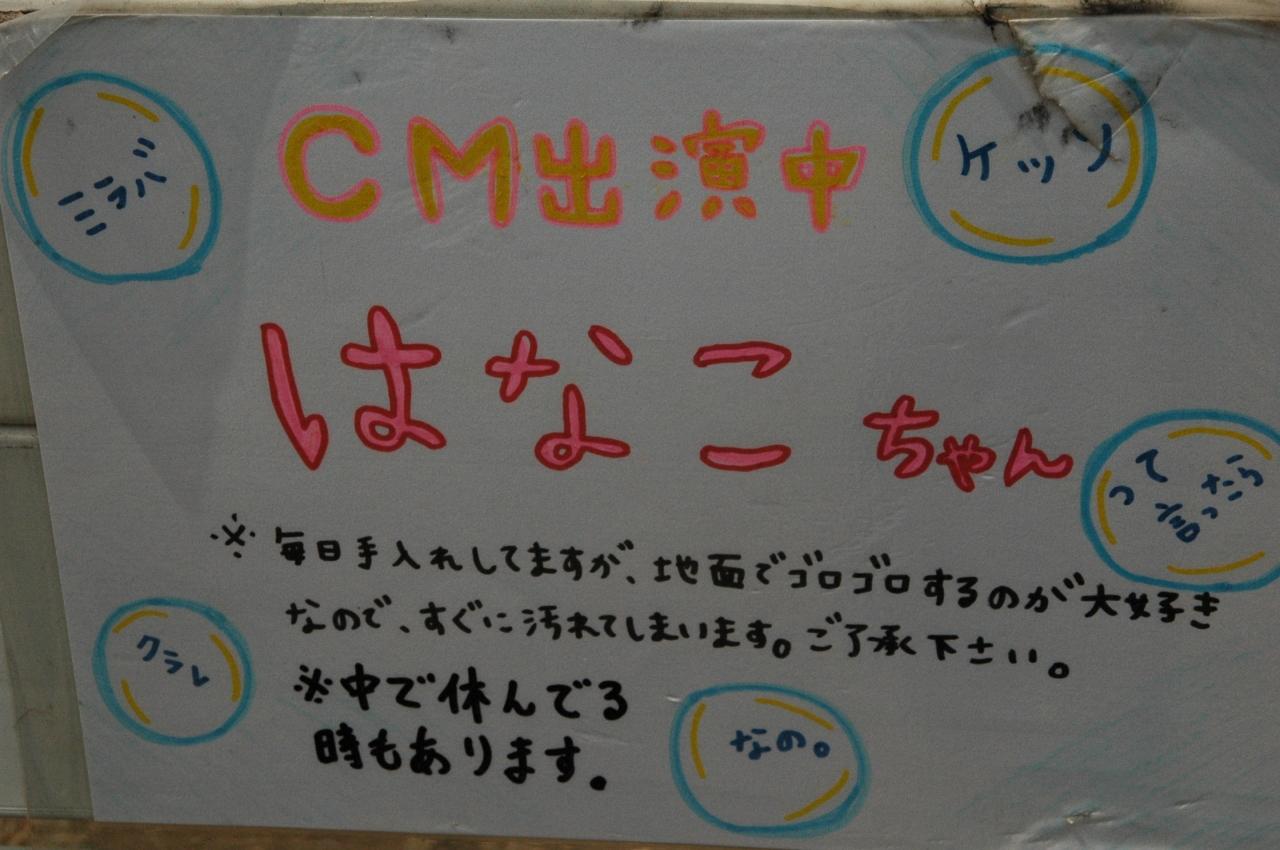 ミラバ
ケッソ
CM出演中
はなこちゃん
って言ったら
※毎日手入れしてますが、地面でゴロゴロするのが大好き
なので、すぐに汚れてしまいます。ご了承下さい。
クラレ
※中で休んでる
時もあります。
なの。